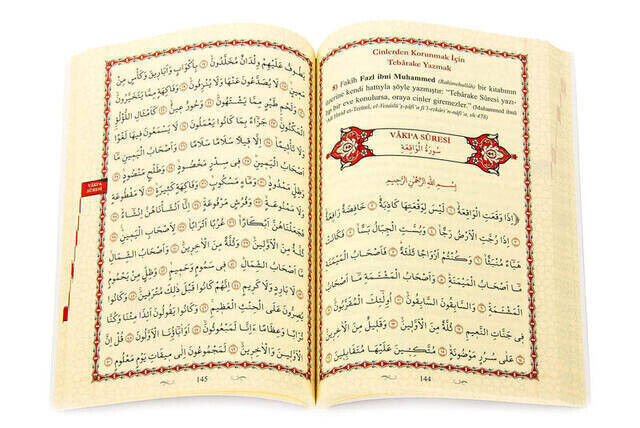 Cinlerden Korunmak İçin
Tebârake Yazmak
8) Fakih Fazl ibni Muhammed (Rahimehullâh) bir kitabının
üzerine kendi hattıyla şöyle yazmıştır: "Tebârake Sûresi yazı-
lıp bir eve konulursa, oraya cinler giremezler." (Muhammed ibnü
et-Terîmî, sh:478)
VÂKI'A SÛRESİ
سُورَةُ الْوَاقِعَةِ
بِسْمِ اللّٰهِ الرَّحْمٰنِ الرَّحِيمِ
﴿اِذَا وَقَعَتِ الْوَاقِعَةُ ۝ لَيْسَ لِوَقْعَتِهَا كَاذِبَةٌ ۝ خَافِضَةٌ رَافِعَةٌ
۝ اِذَا رُجَّتِ الْاَرْضُ رَجًّا ۝ وَبُسَّتِ الْجِبَالُ بَسًّا ۝ فَكَانَتْ
هَبَاءً مُنْبَثًّا ۝ وَكُنْتُمْ اَزْوَاجًا ثَلٰثَةً ۝ فَاَصْحَابُ الْمَيْمَنَةِ
مَا اَصْحَابُ الْمَيْمَنَةِ ۝ وَاَصْحَابُ الْمَشْـَٔمَةِ مَا اَصْحَابُ
الْمَشْـَٔمَةِ ۝ وَالسَّابِقُونَ السَّابِقُونَ ۝ اُولٰئِكَ الْمُقَرَّبُونَ ۝
فِي جَنَّاتِ النَّعِيمِ ۝ ثُلَّةٌ مِنَ الْاَوَّلِينَ ۝ وَقَلِيلٌ مِنَ الْاٰخِرِينَ
۝ عَلٰى سُرُرٍ مَوْضُونَةٍ ۝ مُتَّكِـِٔينَ عَلَيْهَا مُتَقَابِلِينَ ۝
144
VÂKI'A
SÛRESİ
يَطُوفُ عَلَيْهِمْ وِلْدَانٌ مُخَلَّدُونَ ۝ بِاَكْوَابٍ وَاَبَارِيقَ وَكَأْسٍ مِنْ
مَعِينٍ ۝ لَا يُصَدَّعُونَ عَنْهَا وَلَا يُنْزِفُونَ ۝ وَفَاكِهَةٍ مِمَّا يَتَخَيَّرُونَ
۝ وَلَحْمِ طَيْرٍ مِمَّا يَشْتَهُونَ ۝ وَحُورٌ عِينٌ ۝ كَاَمْثَالِ اللُّؤْلُؤِ
الْمَكْنُونِ ۝ جَزَاءً بِمَا كَانُوا يَعْمَلُونَ ۝ لَا يَسْمَعُونَ فِيهَا لَغْوًا
وَلَا تَأْثِيمًا ۝ اِلَّا قِيلًا سَلَامًا سَلَامًا ۝ وَاَصْحَابُ الْيَمِينِ مَا
اَصْحَابُ الْيَمِينِ ۝ فِي سِدْرٍ مَخْضُودٍ ۝ وَطَلْحٍ مَنْضُودٍ ۝
وَظِلٍّ مَمْدُودٍ ۝ وَمَاءٍ مَسْكُوبٍ ۝ وَفَاكِهَةٍ كَثِيرَةٍ ۝ لَا مَقْطُوعَةٍ
وَلَا مَمْنُوعَةٍ ۝ وَفُرُشٍ مَرْفُوعَةٍ ۝ اِنَّا اَنْشَأْنَاهُنَّ اِنْشَاءً ۝
فَجَعَلْنَاهُنَّ اَبْكَارًا ۝ عُرُبًا اَتْرَابًا ۝ لِاَصْحَابِ الْيَمِينِ ۝
ثُلَّةٌ مِنَ الْاَوَّلِينَ ۝ وَثُلَّةٌ مِنَ الْاٰخِرِينَ ۝ وَاَصْحَابُ الشِّمَالِ
مَا اَصْحَابُ الشِّمَالِ ۝ فِي سَمُومٍ وَحَمِيمٍ ۝ وَظِلٍّ مِنْ يَحْمُومٍ
۝ لَا بَارِدٍ وَلَا كَرِيمٍ ۝ اِنَّهُمْ كَانُوا قَبْلَ ذٰلِكَ مُتْرَفِينَ ۝ وَكَانُوا
يُصِرُّونَ عَلَى الْحِنْثِ الْعَظِيمِ ۝ وَكَانُوا يَقُولُونَ اَئِذَا مِتْنَا وَكُنَّا
تُرَابًا وَعِظَامًا ءَاِنَّا لَمَبْعُوثُونَ ۝ اَوَاٰبَاؤُنَا الْاَوَّلُونَ ۝ قُلْ اِنَّ
الْاَوَّلِينَ وَالْاٰخِرِينَ ۝ لَمَجْمُوعُونَ اِلٰى مِيقَاتِ يَوْمٍ مَعْلُومٍ ۝
145